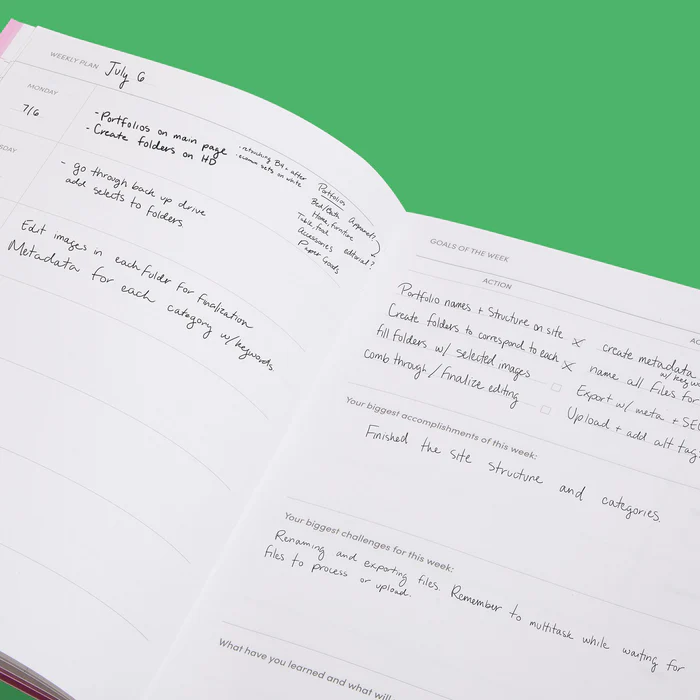 WEEKLY PLAN July 6
MONDAY
7/6
-Portfolios on main page
-Create folders on HD
-retouching B4 + after
Portfolios
Bed/Bath Apparel?
Home, furniture
Table, food
Accessories editorial?
Paper Goods
SDAY
- go through back up drive
add selects to folders
Edit images in each fuldr for finalization
Metadata for each category w/keywords
GOALS OF THE WEEK
ACTION
AC
Portfolio names + Structure on site X
Create folders to correspond to each X
fill folders w/ selected images
comb through / Finalize editing
create metadata
w/ key w
name all files for
Export w/ meta + SE
Upload + add alt tag
Your biggest accomplishments of this week:
Finished the site structure and categories.
Your biggest challenges for this week:
Renaming and exporting files. Remember to multitask while waiting for
files to process or upload.
What have you learned and what will